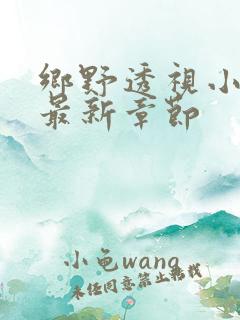 鄉野透視小
最新章節
小龟wang
未经同意禁止转载